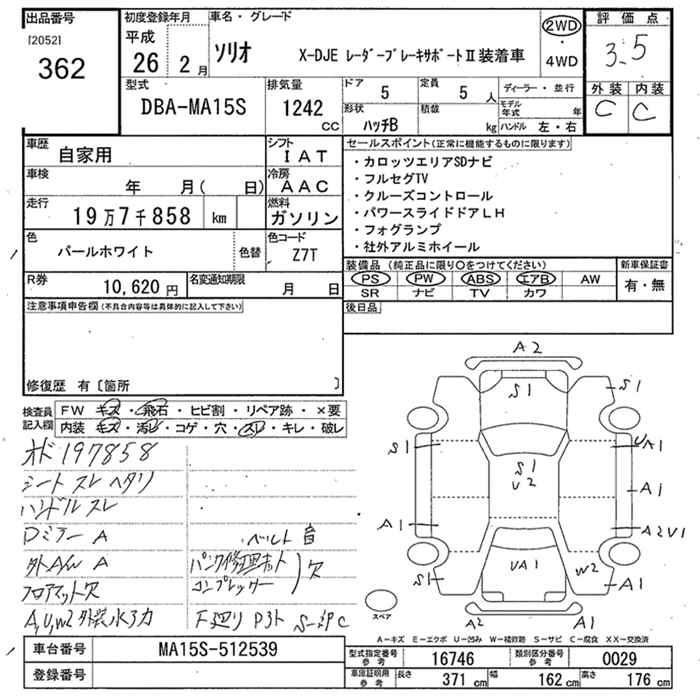 出品番号
[2052]
362
初度登録年月
平成
26 2月
車名・グレード
ソリオ X-DJE レーダーブレーキサポートⅡ装着車
2WD
・
4WD
評価点
3.5
外装 内装
C C
型式
DBA-MA15S
排気量
1242
CC
ドア
5
定員
5 人
形状
ハッチB
積載
kg
ディーラー・並行
モデル年式 年
ハンドル 左・右
車歴
自家用
シフト
IAT
車検
年 月( 日)
冷房
AAC
走行
19万7千858 km
燃料
ガソリン
色
パールホワイト
色替
色コード
Z7T
R券
10,620 円
名変通知期限
月 日
セールスポイント(正常に機能するものに限ります)
・カロッツエリアSDナビ
・フルセグTV
・クルーズコントロール
・パワースライドドアLH
・フォグランプ
・社外アルミホイール
装備品(純正品に限り○をつけてください)
PS PW ABS エアB AW
SR ナビ TV カワ
新車保証書
有・無
後日品
注意事項申告欄(不具合内容等は具体的に記入して下さい)
修復歴 有〔箇所 〕
検査員記入欄
FW キズ・飛石・ヒビ割・リペア跡・×要
内装 キズ・汚レ・コゲ・穴・スレ・キレ・破レ
オド197858
シート スレ ヘタリ
ハンドル スレ
Dミラー A
ベルト 音
外AW A
パンク修理キット
コンプレッサー
欠
フロアマット欠
A,U,W2 外装
F廻り
A2
S1
S1
S1
UA1
S1
U2
A1
A1
A2U1
UA1
S1
W2
A1
A2
A1
スペア
A-キズ E-エクボ U-凹み W-補修跡 S-サビ C-腐食 XX-交換済
車台番号
MA15S-512539
登録番号
型式指定番号
参考
16746
類別区分番号
参考
0029
車庫証明用
参考
長さ
371 cm
幅
162 cm
高さ
176 cm